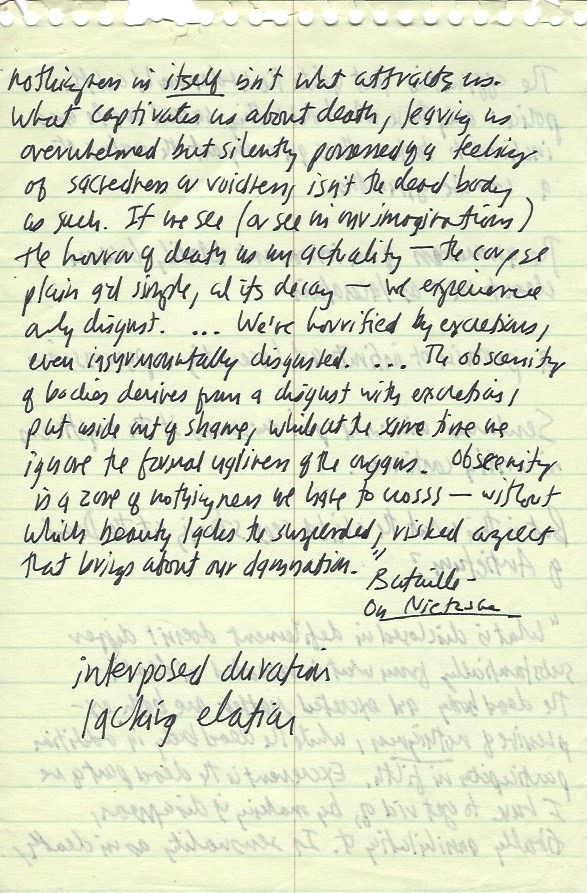 nothingness in itself isn't what attracts us.
What captivates us about death, leaving us
overwhelmed but silently possessed of a feeling
of sacredness or voidness, isn't the dead body
as such. If we see (or see in our imaginations)
the horror of death as an actuality — the corpse
plain and simple, all its decay — we experience
only disgust. ... We're horrified by excretions,
even insurmountably disgusted. ... The obscenity
of bodies derives from a disgust with excretions,
put aside out of shame, while at the same time we
ignore the formal ugliness of the organs. Obscenity
is a zone of nothingness we have to crosss — without
which beauty lacks the suspended, risked aspect
that brings about our damnation."
Bataille -
On Nietzsche
interposed duration
lacking elation